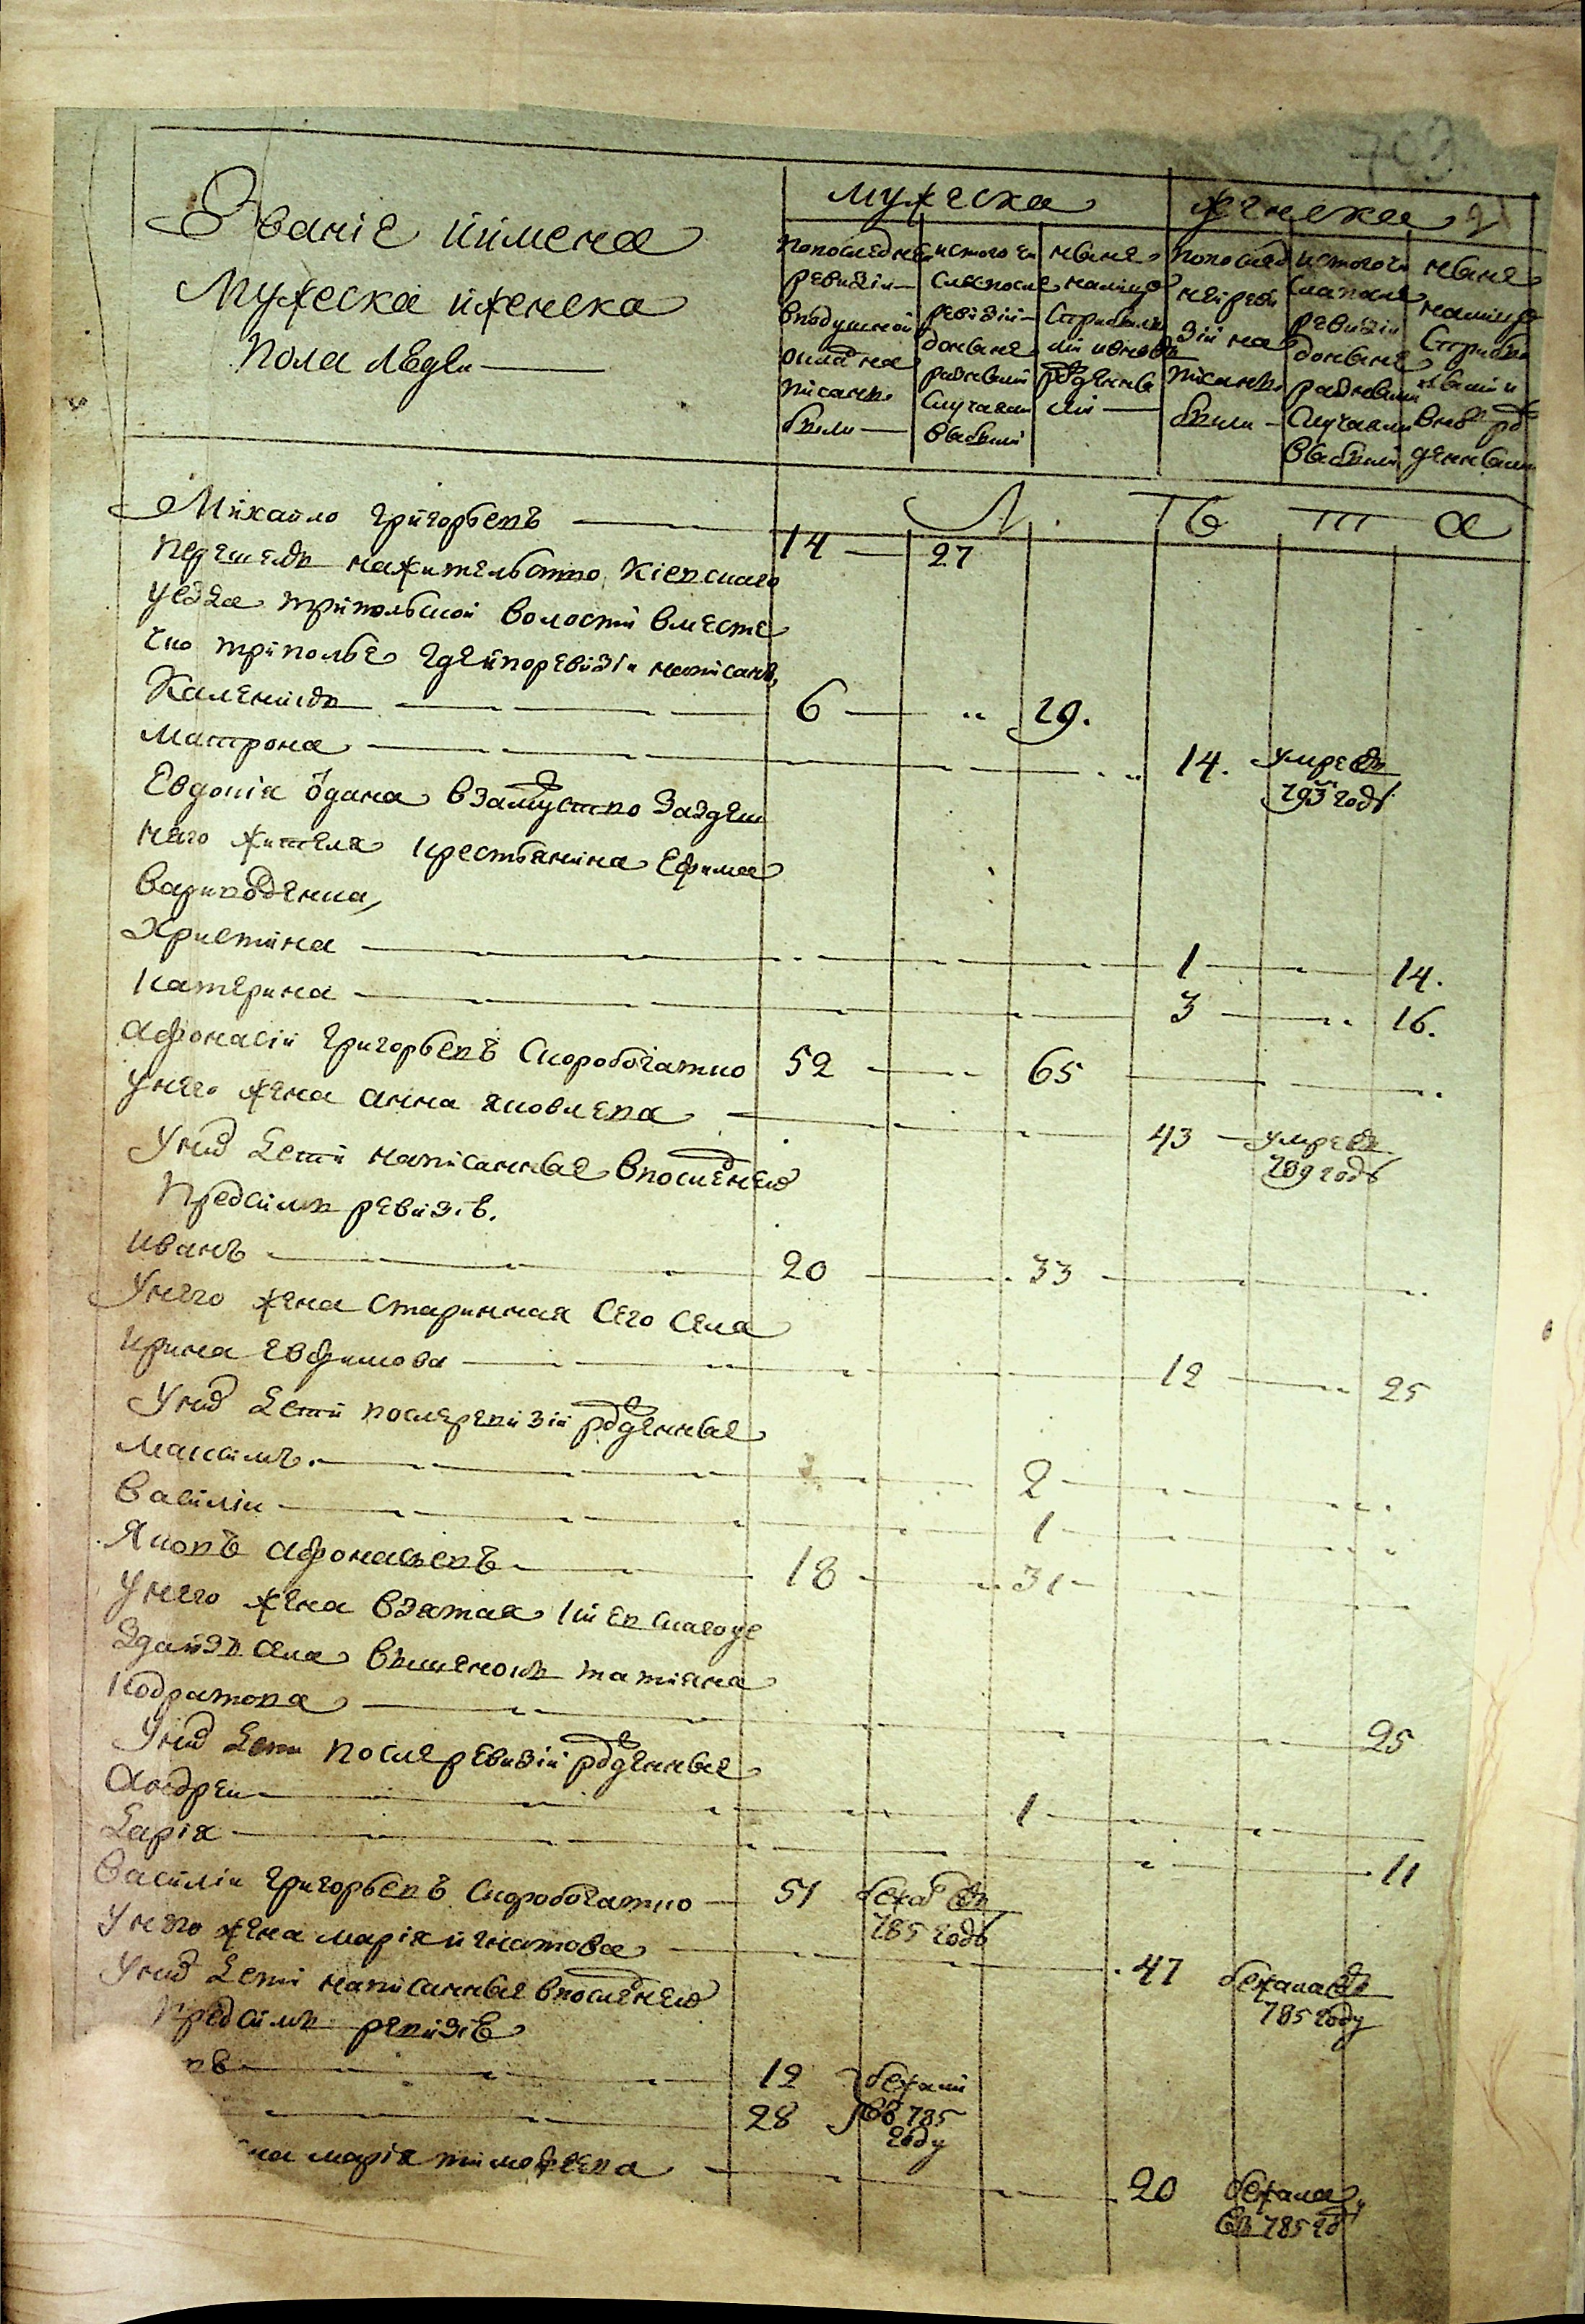 703
Званiе иимена
Мужеска иженска
Пола людеи
мужеска
женска
21
попоследнеи
ревизiи
вподушной
окладъ
писанъ
были
истого чи
сла после
ревизiи
доныне
разными
случаями
выбыли
ныне
налицо
старыхъ
ли иновь
рожденны
ли
попослед
неи реви
зiи на
писанъ
были
истого чи
сла после
ревизiи
доныне
разными
случаями
выбыли
ныне
налицо
старые
ивновь рож
денными
Л Ѣ Т А
Михайло григорьевъ 14 27
перешелъ нажительство Кiевскаго
уезда трипольской волости вместе
чко триполье гдеипоревизiи написанъ,
Каленикъ 6 .. 19.
матрона 14. умре въ
793м годѣ
Евдокiя отдана взамужство заздеш
няго жителя крестьянина Ефима
христина 1 14.
катерина 3 .. 16.
афонасiй григорьевъ скоробогатко 52 65
унего жена анна яковлева 43 умре въ
789 годѣ
Унихъ дети написанные впоследнею
предсимъ ревизiю.
иванъ 20 33
Унего жена старинная сего села
ирина евфимова 12 25
Унихъ дети послеревизiи рожденные
максимъ. 2
василiи 1
яковъ афонасьевъ 18 31
унего жена взятая кiевскагоуе
зда изъ села витачовъ татiяна
кодратова 25
Унихъ дети послеревизiи рожденные
Андреи 1
дарiя 11
василiи григорьевъ скоробогатко 51 бежалъ въ
785 годѣ
унего жена марiя игнатова 47 бежала въ
785 году
Унихъ дети написанные впоследнею
предсимъ ревизiю
въ 12 бежали
28 въ 785
году
на марiя тимофеева 20 бежала
въ 785 год